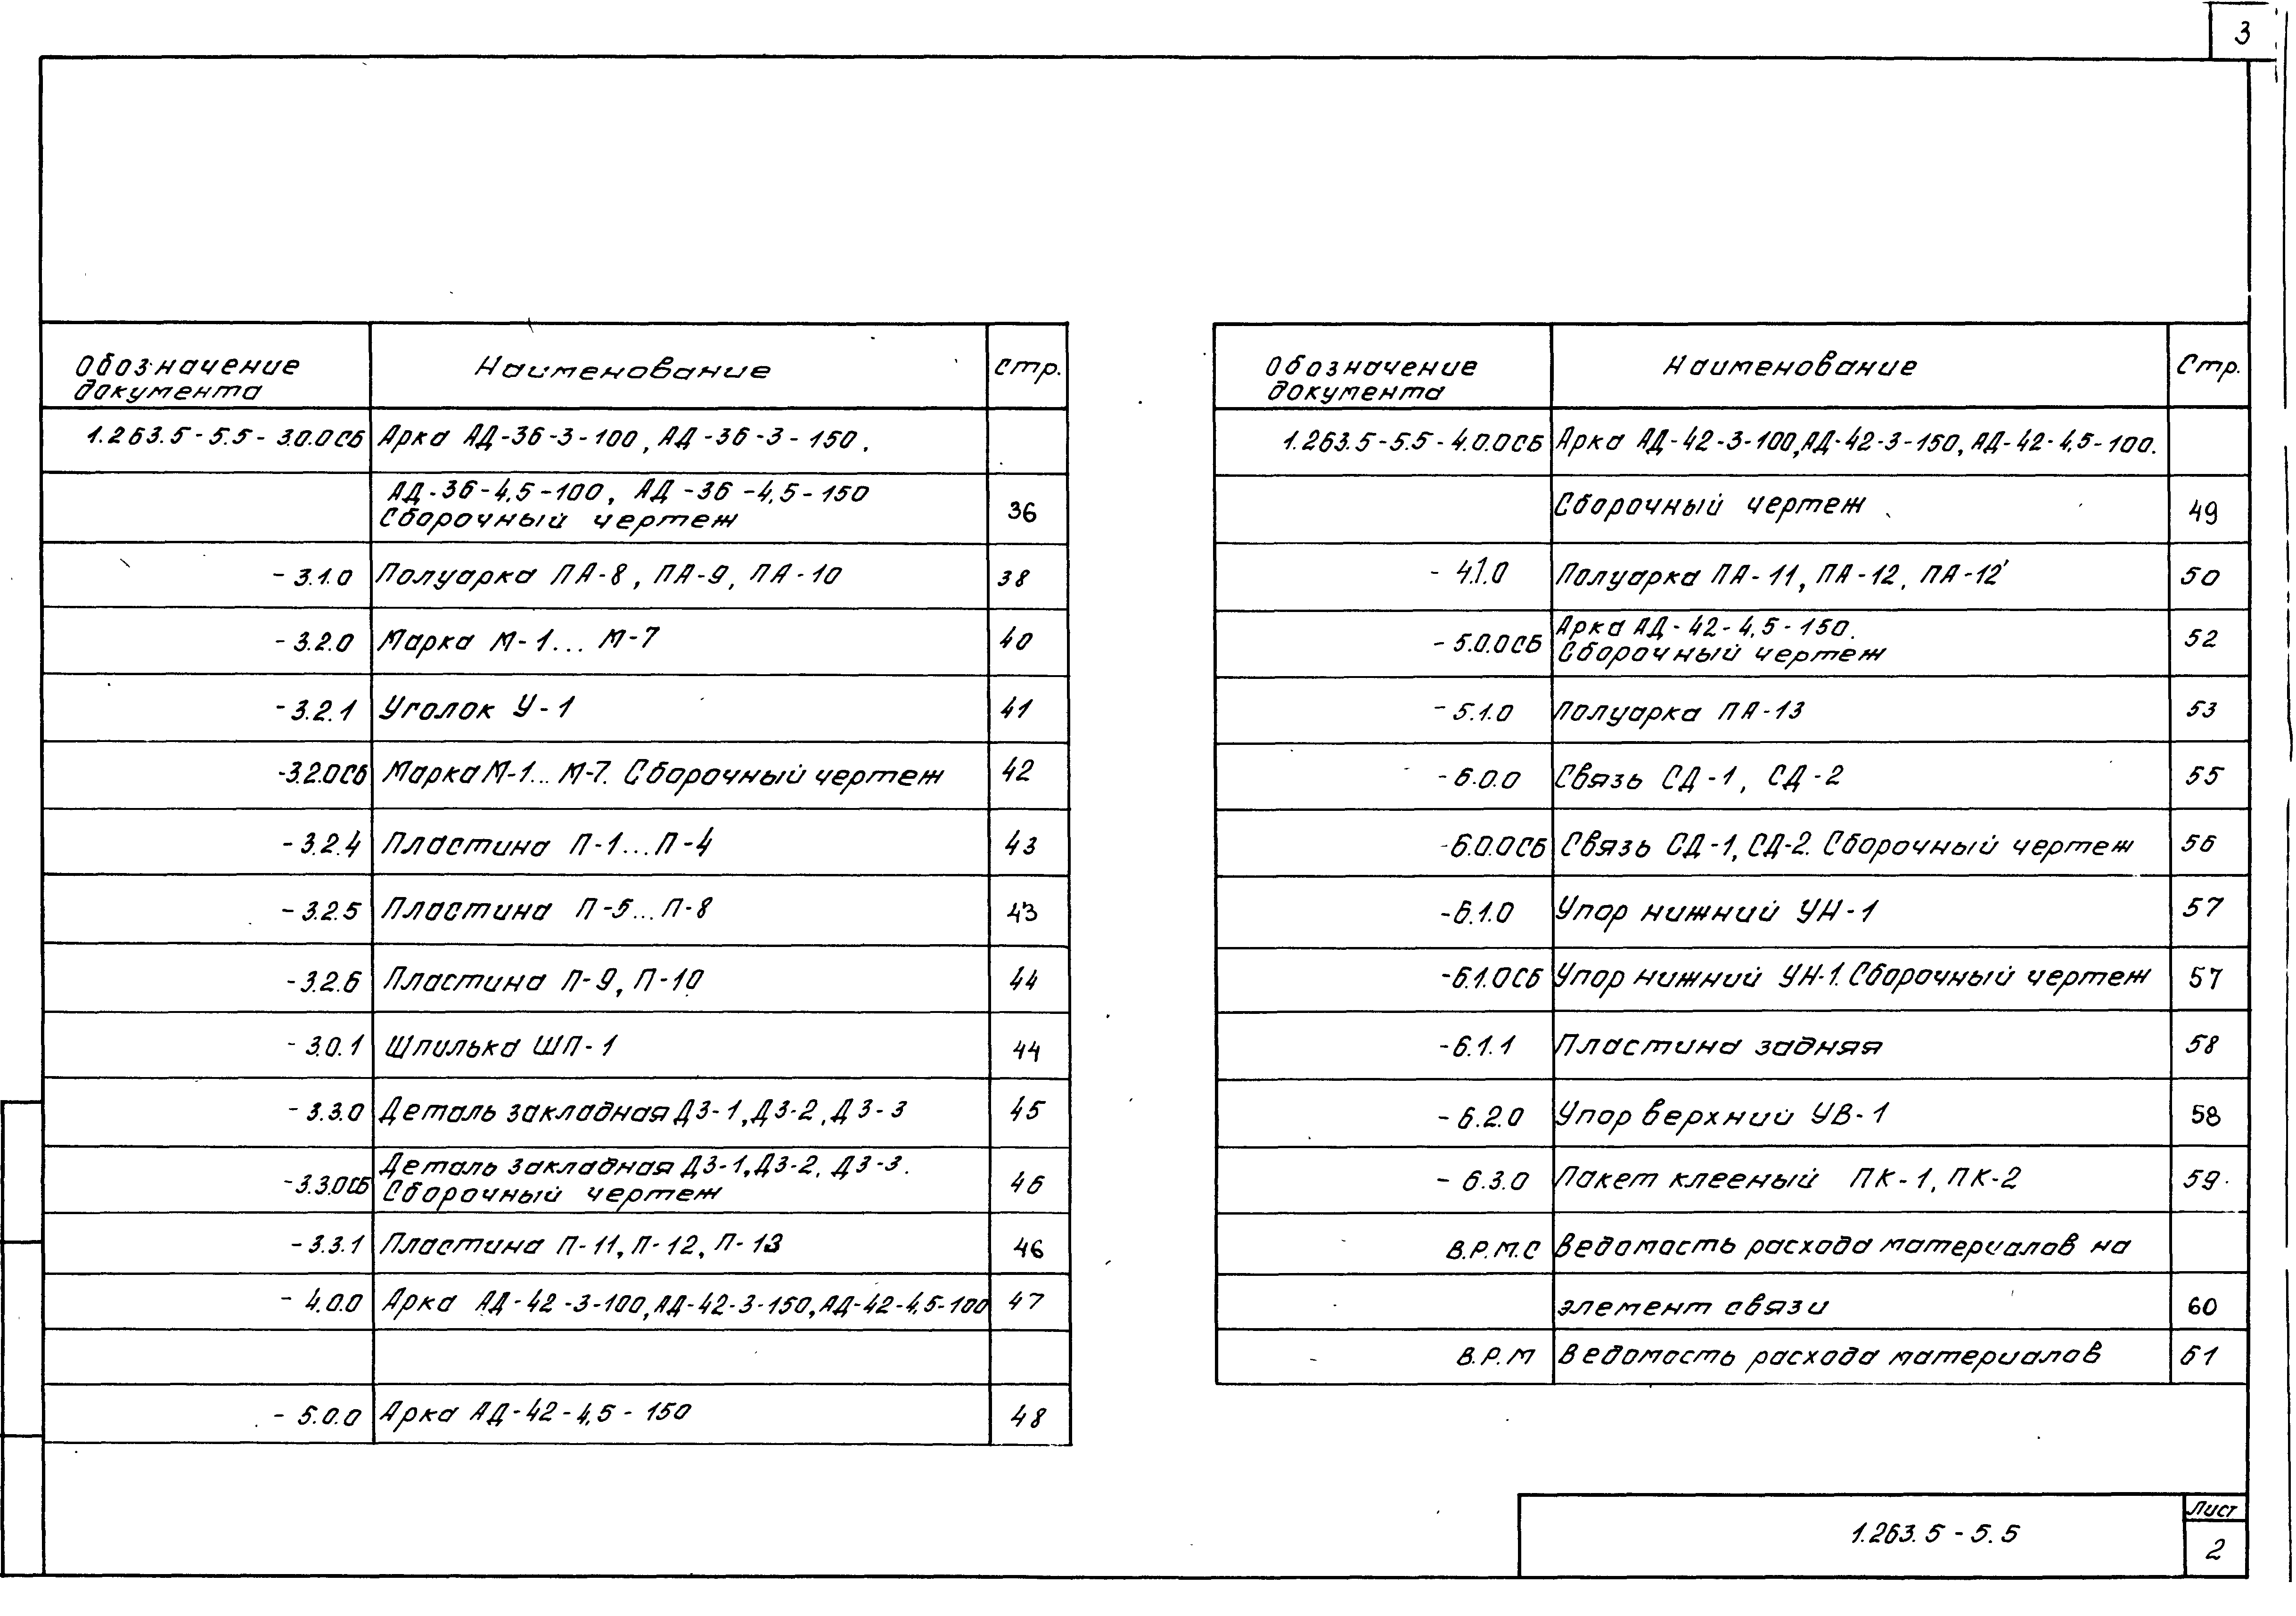 3
Обозначение документа Наименование Стр.
1.263.5-5.5-3.0.0СБ Арка АД-36-3-100, АД-36-3-150.
АД-36-4,5-100, АД-36-4,5-150
Сборочный чертеж 36
-3.1.0 Полуарка ПА-8, ПА-9, ПА-10 38
-3.2.0 Марка М-1... М-7 40
-3.2.1 Уголок У-1 41
-3.2.0СБ Марка М-1... М-7. Сборочный чертеж 42
-3.2.4 Пластина П-1...П-4 43
-3.2.5 Пластина П-5...П-8 43
-3.2.6 Пластина П-9, П-10 44
-3.0.1 Шпилька ШП-1 44
-3.3.0 Деталь закладная ДЗ-1, ДЗ-2, ДЗ-3 45
-3.3.0СБ Деталь закладная ДЗ-1, ДЗ-2, ДЗ-3.
Сборочный чертеж 46
-3.3.1 Пластина П-11, П-12, П-13 46
-4.0.0 Арка АД-42-3-100, АД-42-3-150, АД-42-4,5-100 47
-5.0.0 Арка АД-42-4,5-150 48
Обозначение документа Наименование Стр.
1.263.5-5.5-4.0.0СБ Арка АД-42-3-100, АД-42-3-150, АД-42-4,5-100.
Сборочный чертеж 49
-4.1.0 Полуарка ПА-11, ПА-12, ПА-12' 50
-5.0.0СБ Арка АД-42-4,5-150.
Сборочный чертеж 52
-5.1.0 Полуарка ПА-13 53
-6.0.0 Связь СД-1, СД-2 55
-6.0.0СБ Связь СД-1, СД-2. Сборочный чертеж 56
-6.1.0 Упор нижний УН-1 57
-6.1.0СБ Упор нижний УН-1. Сборочный чертеж 57
-6.1.1 Пластина задняя 58
-6.2.0 Упор верхний УВ-1 58
-6.3.0 Пакет клееный ПК-1, ПК-2 59
В.Р.М.С Ведомость расхода материалов на
элемент связи 60
В.Р.М Ведомость расхода материалов 61
1.263.5-5.5
Лист
2